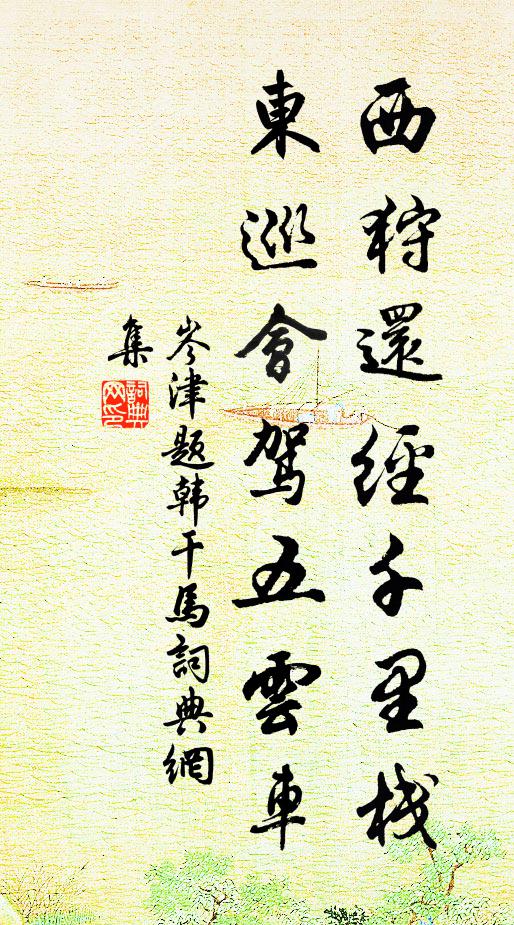 西狩還經千里棧
東巡會駕五雲車
岑津題韩干馬詞典網
集
詞典网印